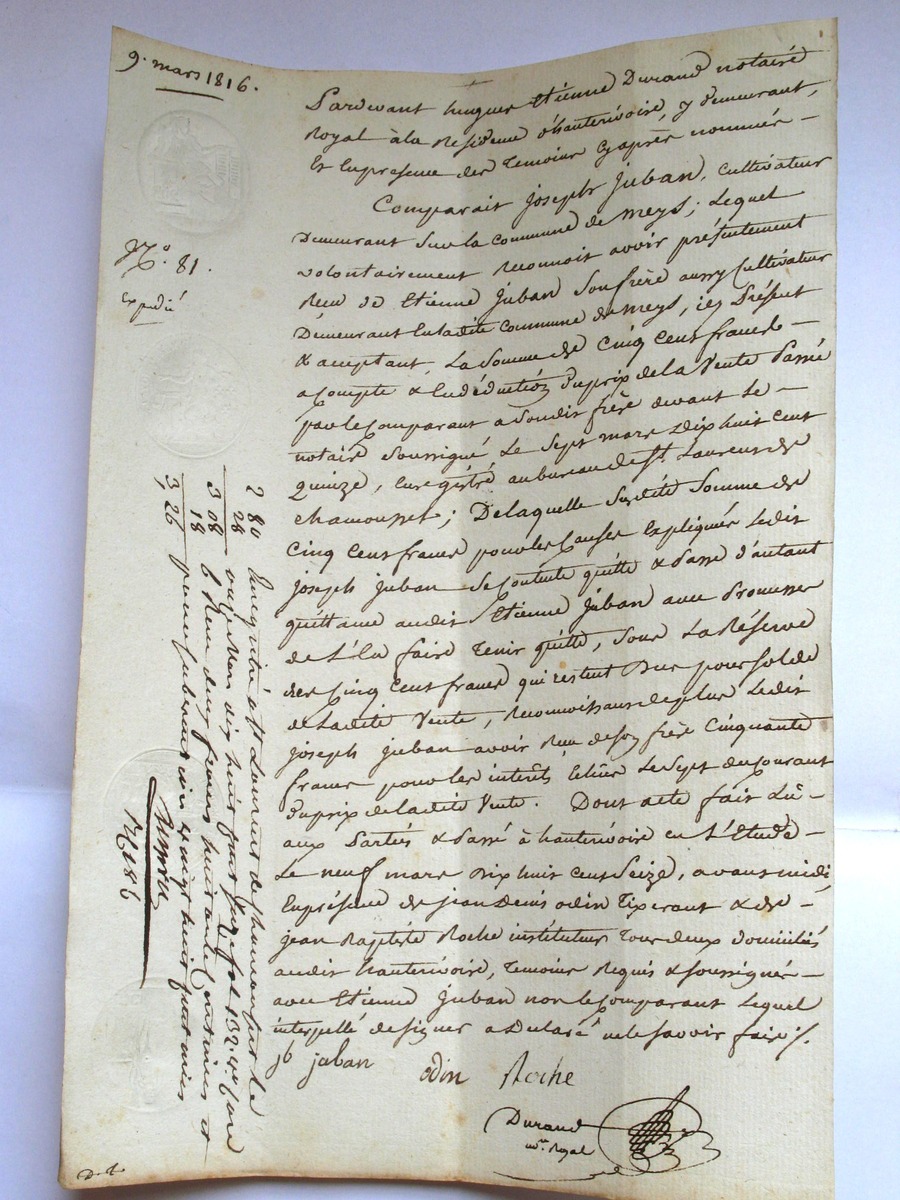 9. mars 1816.
N.º 81.
Expédié
Pardevant hugues Etiénne Durand notairé
Royal àla Residence d'hauterivoire, y demeurant,
Et Enpresence des Temoins Cyaprès nommés —
Comparait joseph juban, cultivateur
Demeurant Sur la commune de meys; Lequel
volontairement Reconnoit avoir présentement
Recu de Etienne juban Son frère aussy Cultivateur
Demeurant Enladite commune de meys, icy Présent
& acceptant, La Somme de Cinq Cent francs —
acompte & En déduction Duprix de la Vente Passée
par le Comparant a Sondit frère devant Le —
notaire Soussigné Le Sept mars Dix huit Cent
quinze, Enregistré aubureau de St Laurens de
chamousset; De laquelle Susdite Somme de
Cinq Cent francs pour les Causes Expliquées Ledit
joseph juban Se Contente quitte & Passe d'autant
quittance audit Etienne juban avec Promesse
de L'En faire Tenir quitte, Sous La Réserve
des Cinq Cent francs qui restent Dus pour Solde
de Ladite Vente, Reconnoissant de plus Ledit
joseph juban avoir Recu de Son frère Cinquante
francs pour les interêts Echus Le Sept du Courant
Duprix de Ladite Vente. Dont acte fait Lu —
aux Parties & Passé à hauterivoire en L'Etude —
Le neuf mars Dix huit Cent Seize, avant midi
Enprésence de jean Denis odin Tixerant & de —
jean Baptiste Roche instituteur Tous deux domiciliés
audit hauterivoire, Temoins Requis & Soussignés —
avec Etienne juban non le Comparant Lequel
interpellé de signer a Déclaré ne le Savoir faire ./.
jh juban odin Roche
Durand
nre Royal
2 80 Enregistré à St Laurent de Chamousset le
28 mars 1816 fol 132
3 08 Reçu deux francs huitante centimes et
18
3,26 pour subvention vingt huit centimes
R 186